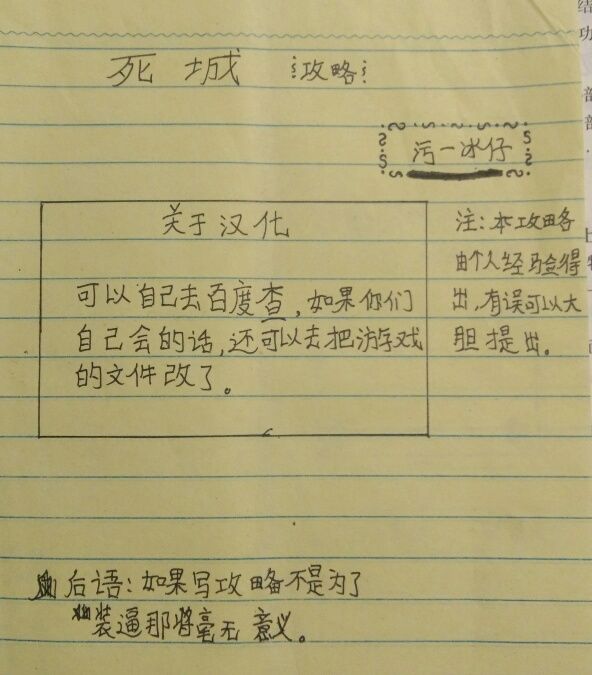 死城 攻略
污一冰仔
关于汉化
可以自己去百度查,如果你们
自己会的话,还可以去把游戏
的文件改了。
注:本攻略
由个人经验得
出,有误可以大
胆提出。
后语:如果写攻略不是为了
装逼那将毫无意义。
结
功
部
部